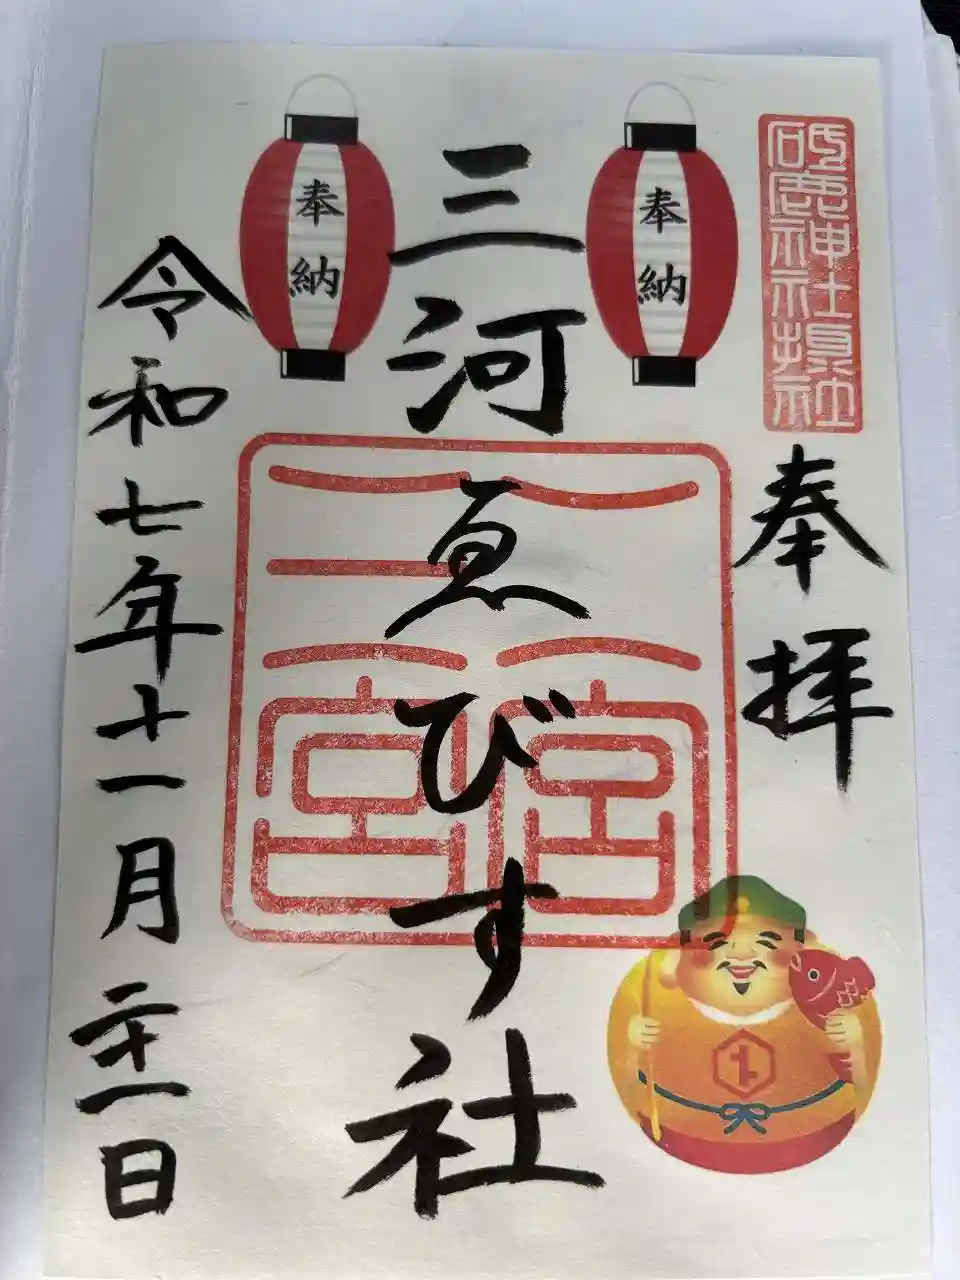 砥鹿神社摂社
奉拝
奉納
三河ゑびす社
二宮
三宮
奉納
令和七年十一月二十一日